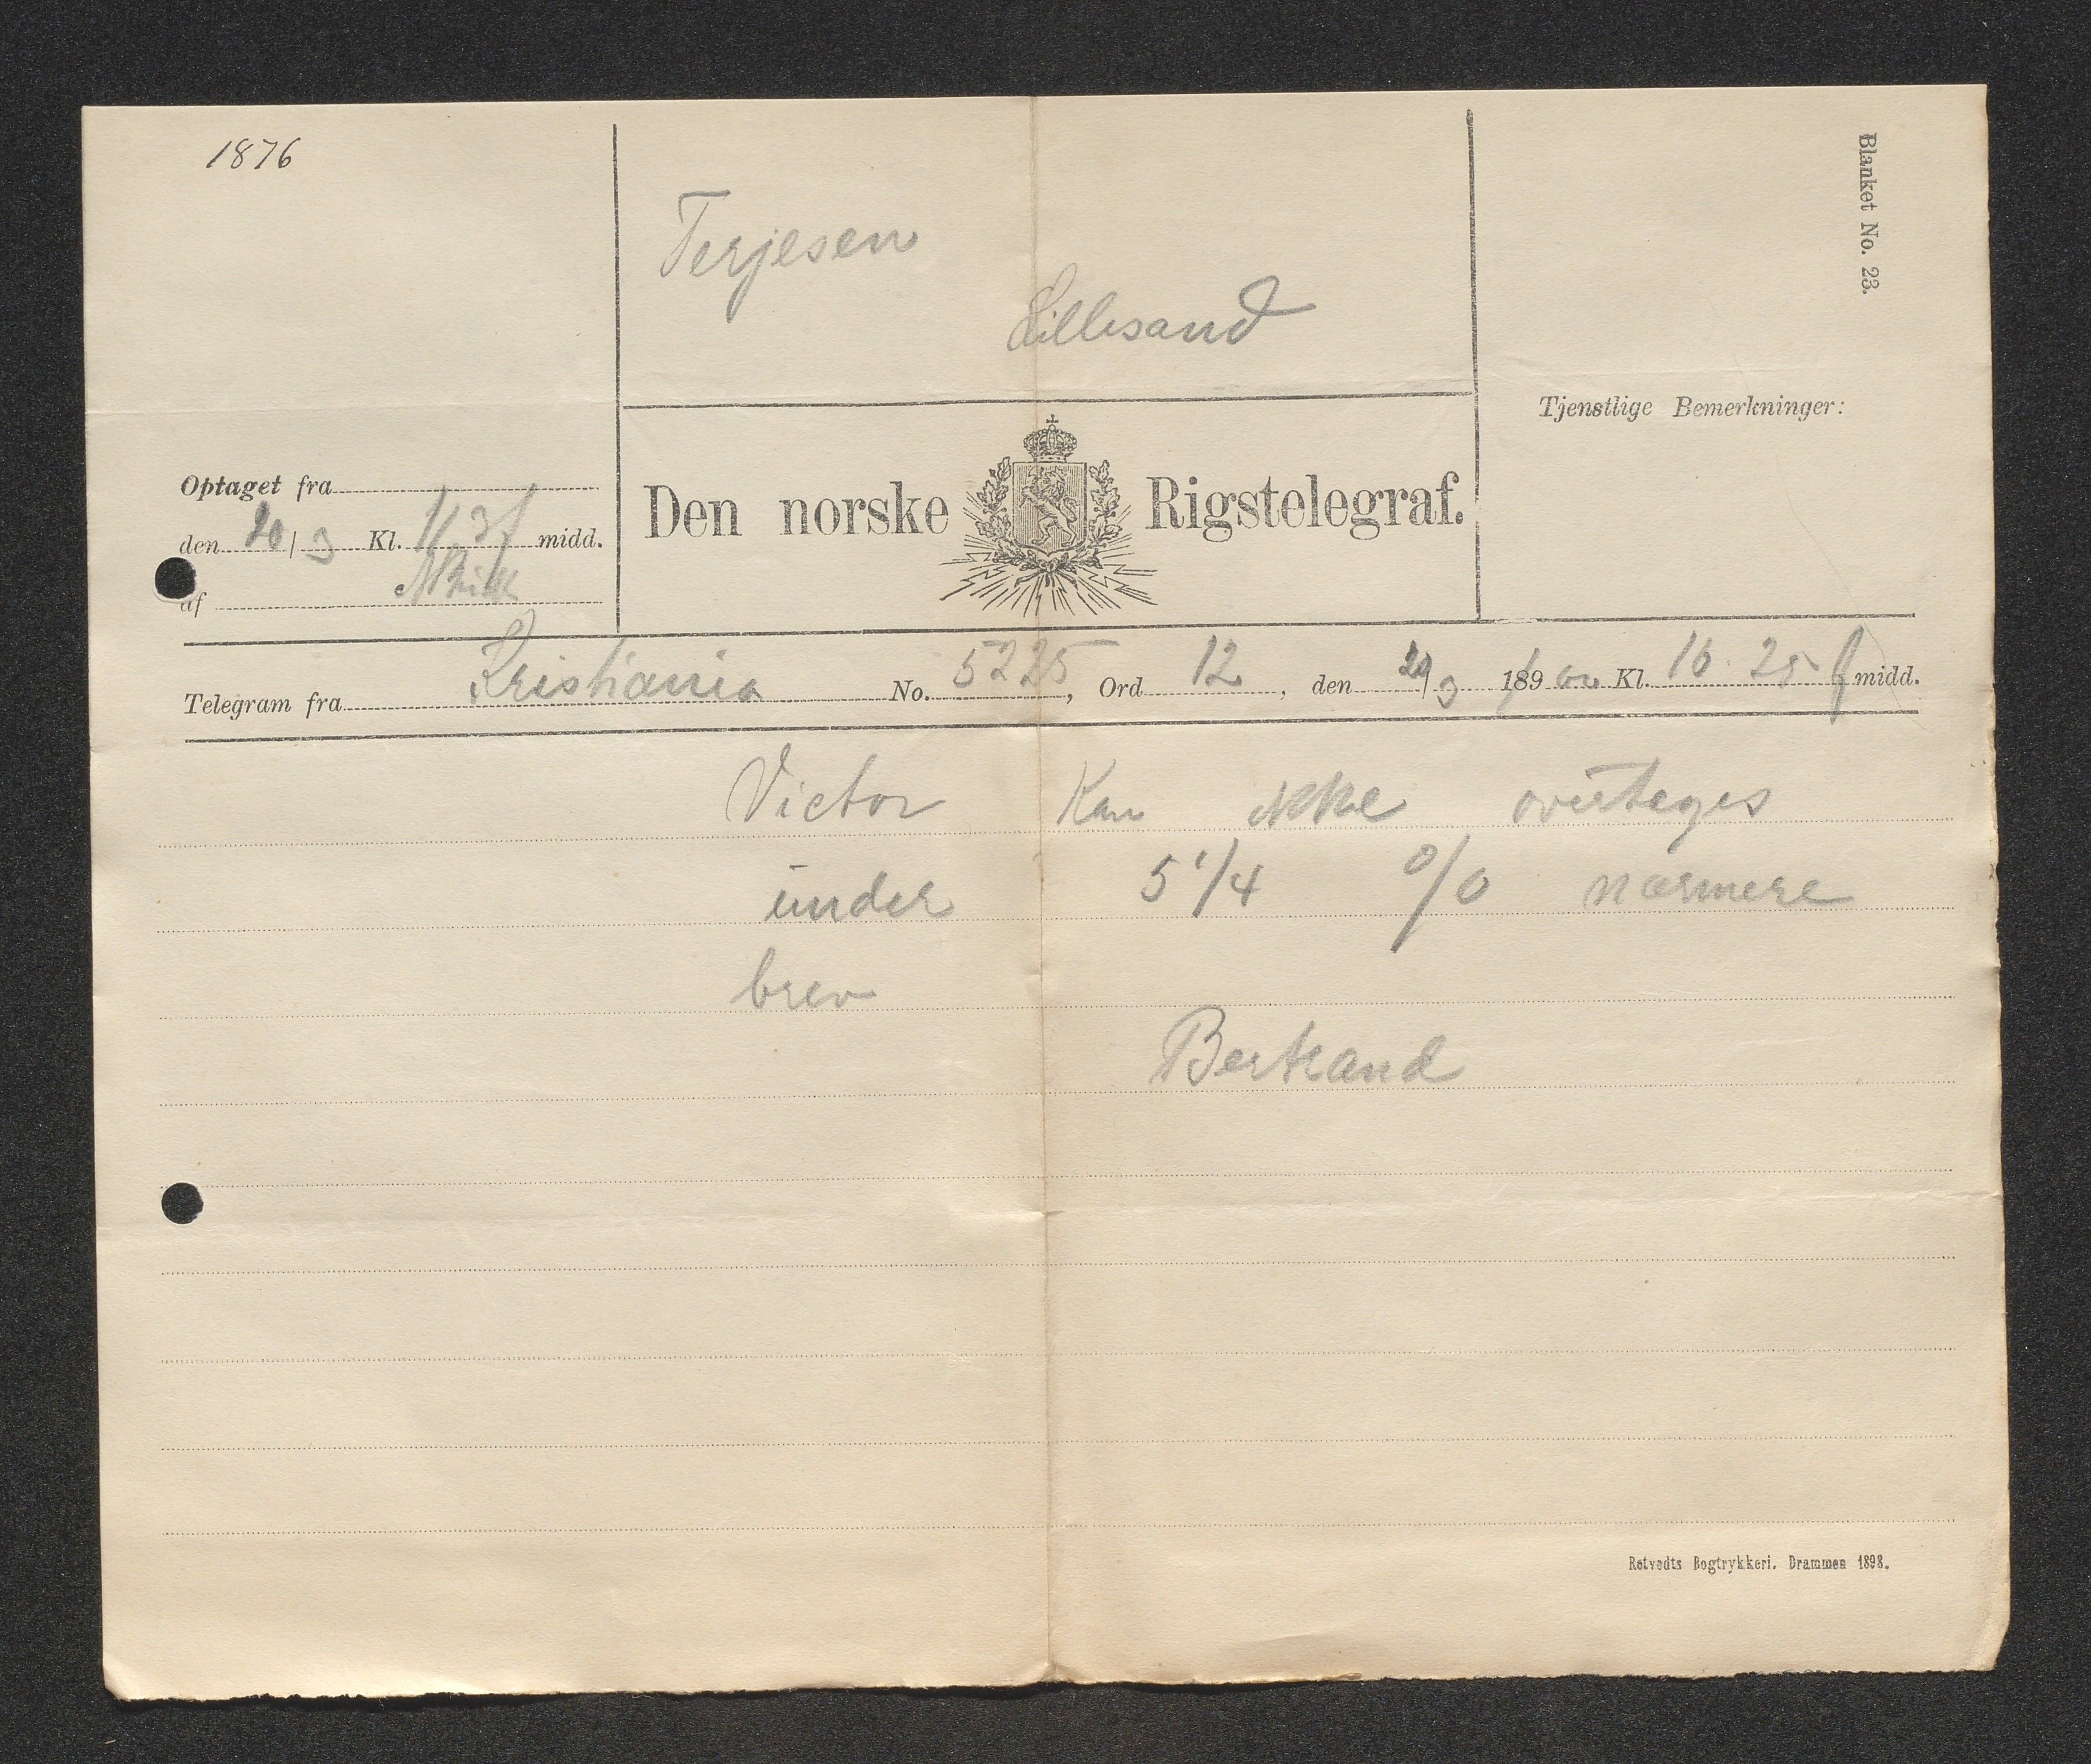 1876
Terjesen
Lillesand
Blanket No. 23.
Tjenstlige Bemerkninger:
Optaget fra
den 20/3 Kl. 11 3 f midd.
af
Den norske Rigstelegraf.
Telegram fra Kristiania No. 5225, Ord 12, den 20/3 189 Kl. 10 25 f midd.
Victor Kan ikke overtages
under 5 1/4 o/o nærmere
brev
Bertrand
Retvedts Bogtrykkeri. Drammen 1898.